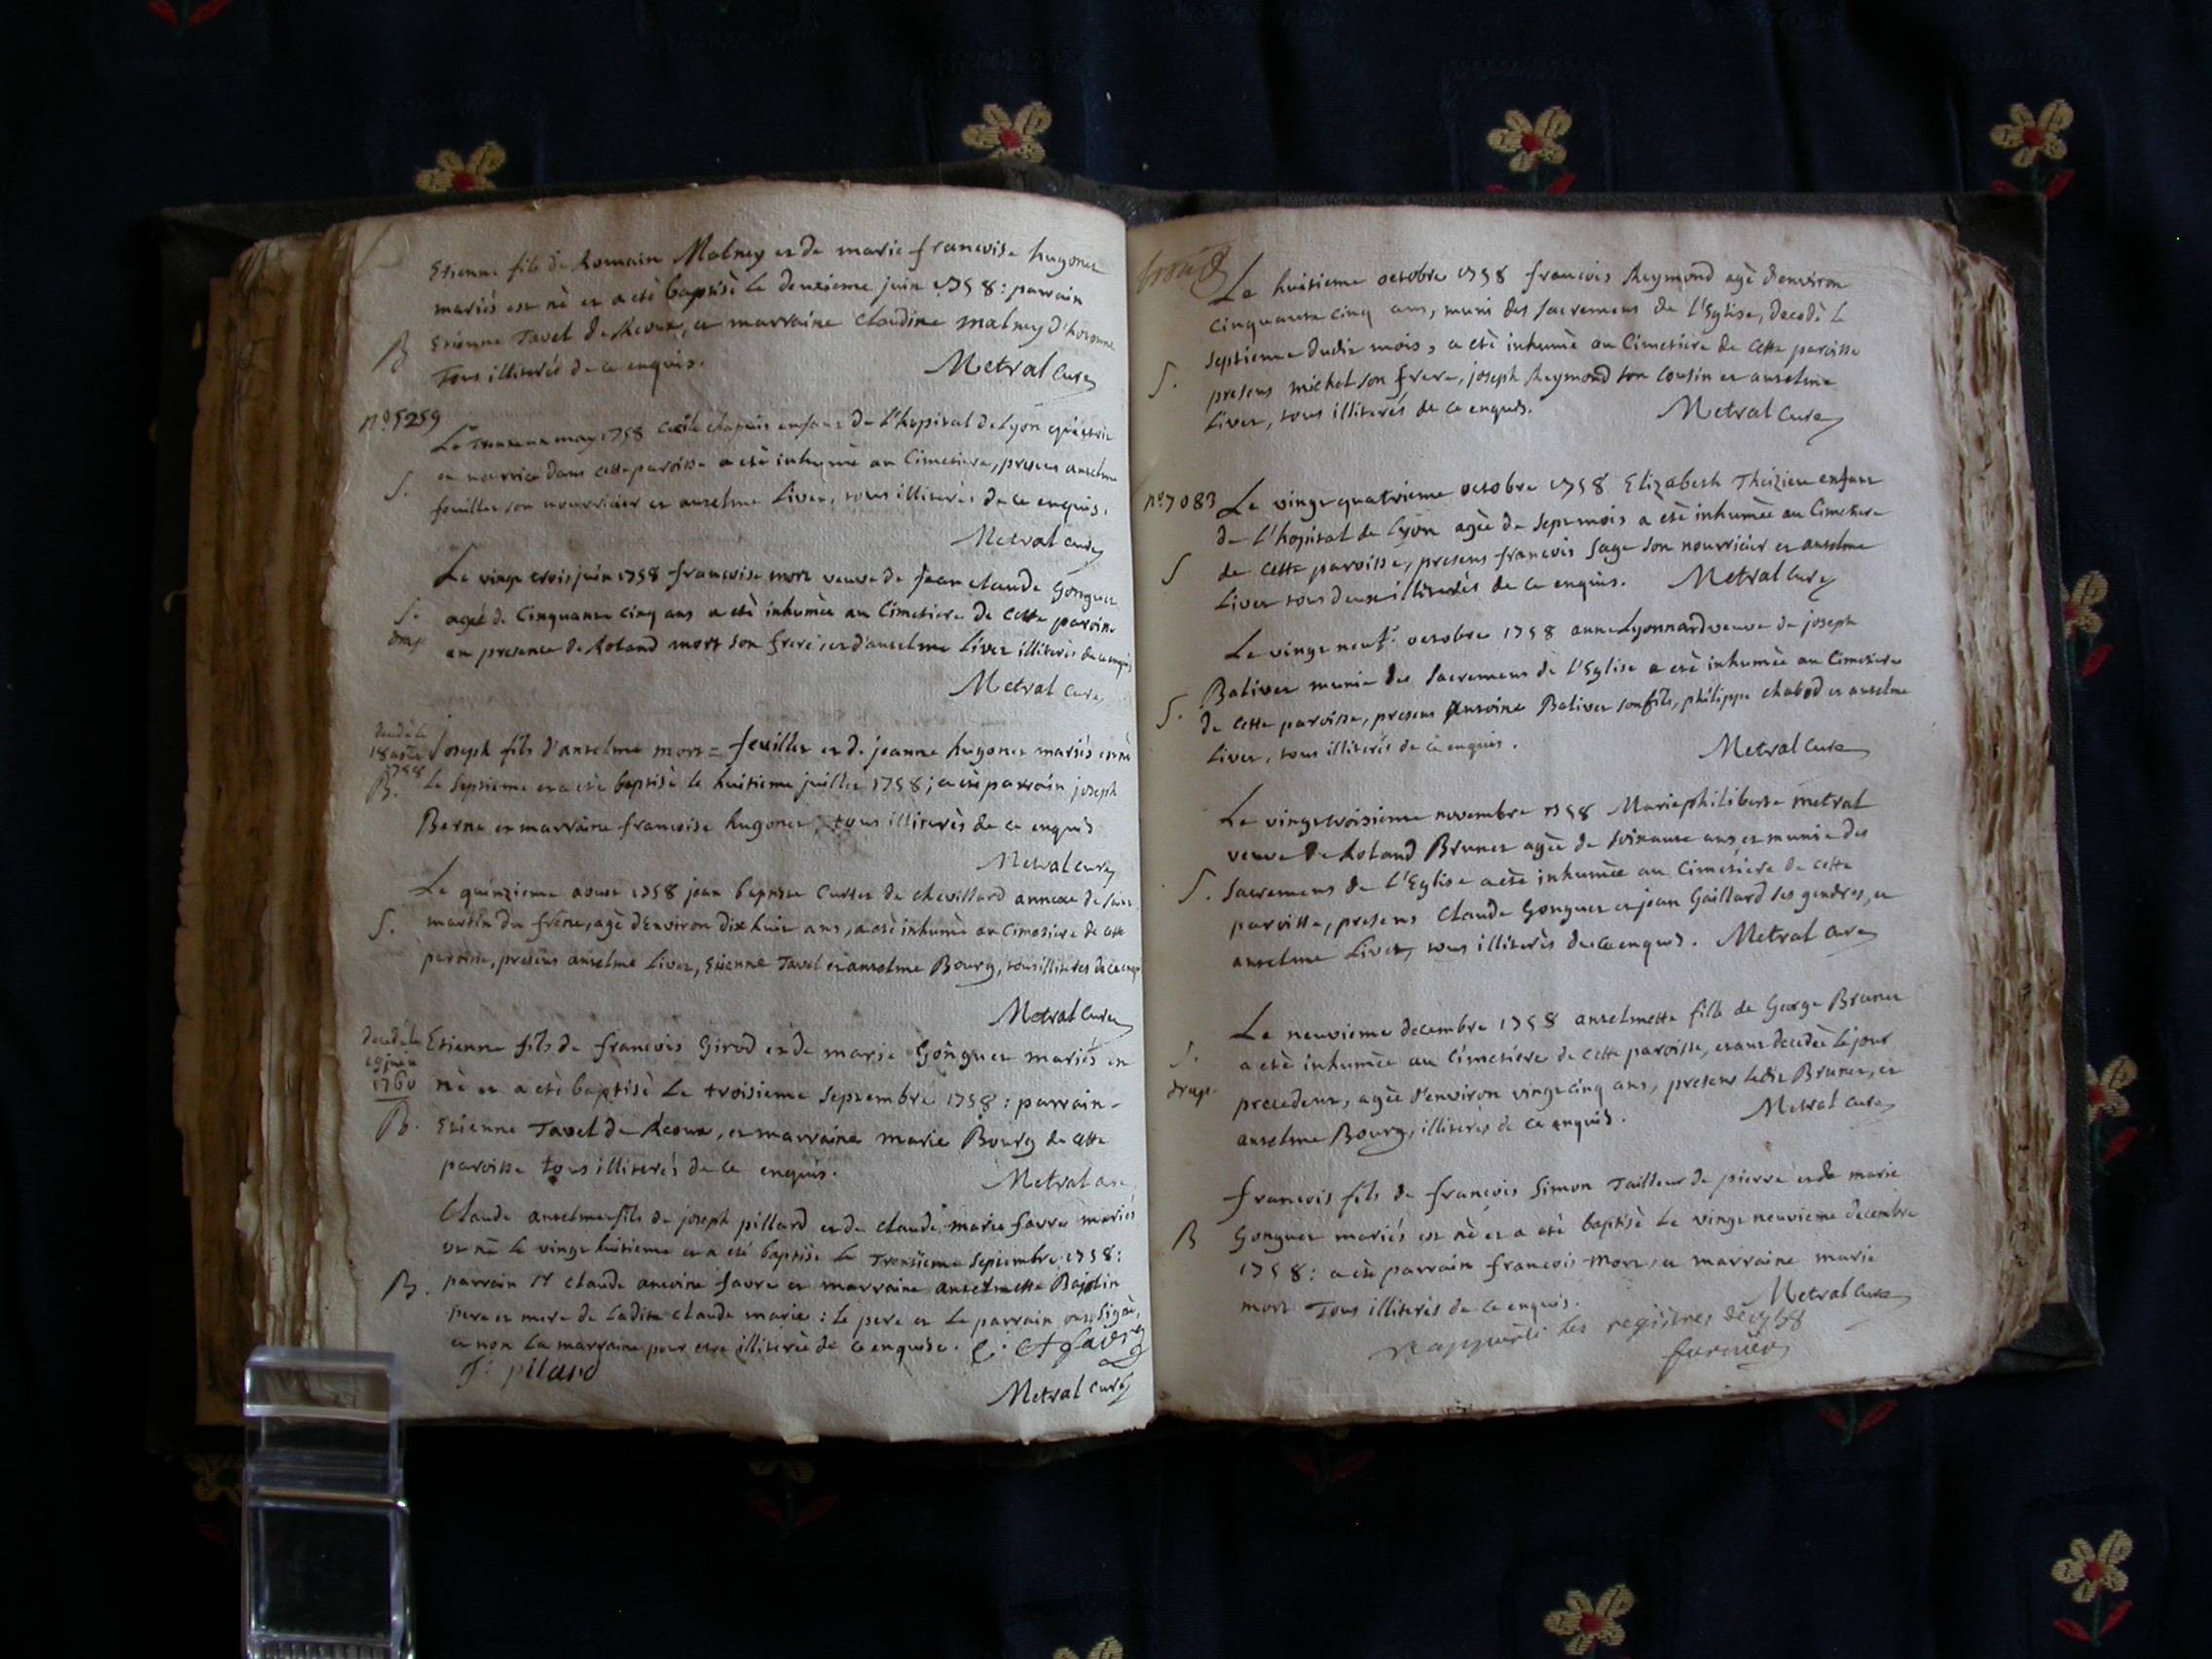 Etienne fils de Romain Malney et de marie francoise hugonet
mariés est nè et a etè baptisè le deuxieme juin 1758 : parrain
B Etienne Tavel de Reoux, et marraine claudine malney d'
Tous illiterés de ce enquis.
Metral Curé
n.º 5259
Le Trente un may 1758 Cecile chapuis enfant de l'hopital de Lyon
en nourrice dans cette paroisse a etè inhumè au Cimetiere, presens anselme
S. feuillet son nourricier et anselme Livet, tous illiterès de ce enquis.
Metral Curé
Le vingt trois juin 1758 francoise mort veuve de Jean claude Gonguet
S. agèe de Cinquante cinq ans a etè inhumèe au Cimetiere de cette paroisse
en presence de Roland mort son frere, et d'anselme Livet illiterès de ce enquis
Metral Curé
decedè le
18 aout
1758
B.
Joseph fils d'anselme mort = feuillet et de jeanne hugonet mariés est nè
Le Septieme et a etè baptisè le huitieme juillet 1758 ; a etè parrain joseph
Berne et marraine francoise hugonet, tous illiterès de ce enquis
Metral Curé
Le quinzieme aoust 1758 jean baptiste Curtet de chevillard annexe de saint
S. martin du frêne, agè d'environ dix huit ans, a etè inhumè au Cimetiere de cette
paroisse, presens anselme Livet, Etienne Tavel et anselme Bourg, tous illiteres de ce enquis
Metral Curé
decedè le
19 juin
1760
B.
Etienne fils de francois Girod et de marie Gonguet mariés est
nè et a etè baptisè Le troisieme Septembre 1758 : parrain -
Etienne Tavel de Reoux, et marraine marie Bourg de cette
paroisse tous illiterés de ce enquis.
Metral Curé
Claude anselme fils de joseph pillard et de claude marie favre mariés
est nè le vingt huitieme et a etè baptisè le Trentieme Septembre 1758 :
B. parrain Sr claude antoine favre et marraine anselmette Bajolin
pere et mere de Ladite claude marie : Le pere et Le parrain ont signè,
et non La marraine pour etre illiterèe de ce enquise. C: A favre
J: pilard
Metral curé
Le huitieme octobre 1758 francois Reymond agè d'environ
Cinquante cinq ans, muni des sacremens de l'Eglise, decedè le
Septieme dudit mois, a etè inhumè au Cimetiere de cette paroisse
S. presens michel son frere, joseph Reymond son cousin et anselme
Livet, tous illiterés de ce enquis.
Metral Curé
n.º 7083 Le vingt quatrieme octobre 1758 Elizabeth Theizieu enfant
de l'hopital de Lyon agèe de sept mois a etè inhumèe au Cimetiere
S de cette paroisse, presens francois Sage son nourricier et anselme
Livet tous deux illiterès de ce enquis. Metral Curé
Le vingt neuf.e octobre 1758 anne Lyonnard veuve de joseph
Balivet munie des Sacremens de l'Eglise a etè inhumèe au Cimetiere
S. de cette paroisse, presens Antoine Balivet son fils, philippe chabod et anselme
Livet, tous illiterés de ce enquis.
Metral Curé
Le vingt troisieme novembre 1758 Marie philiberte metral
veuve de Roland Brunet agèe de soixante ans et munie des
S. Sacremens de l'Eglise a etè inhumèe au Cimetiere de cette
paroisse, presens Claude Gonguet et jean Gaillard ses gendres, et
anselme Livet, tous illiterès de ce enquis. Metral Curé
Le neuvieme decembre 1758 anselmette fille de George Brunet
S. a etè inhumèe au Cimetiere de cette paroisse, etant decedèe Le jour
drap. precedent, agèe d'environ vingt cinq ans, presens ledit Brunet, et
anselme Bourg, illiterès de ce enquis.
Metral Curé
francois fils de françois Simon Tailleur de pierre et de marie
B Gonguet mariés est nè et a etè baptisè Le vingt neuvieme decembre
1758 : a etè parrain francois Mort, et marraine marie
mort Tous illiterès de ce enquis.
Metral Curé